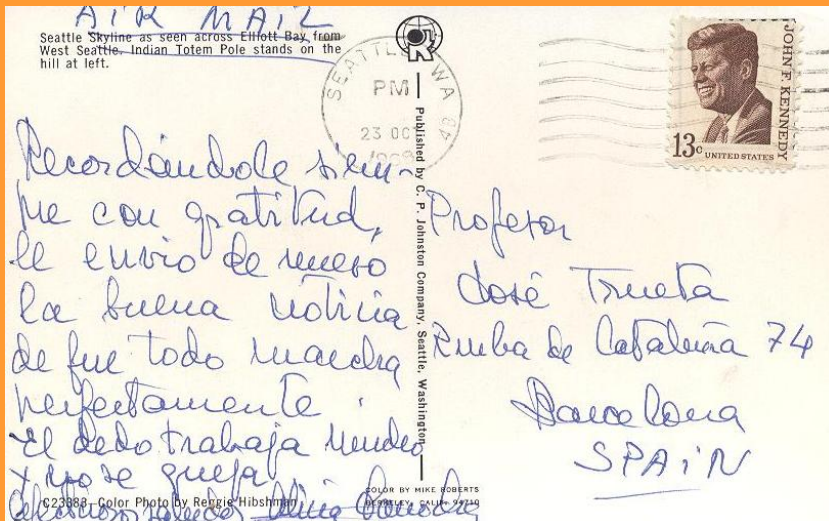 AIR MAIL
Seattle Skyline as seen across Elliott Bay from
West Seattle. Indian Totem Pole stands on the
hill at left.
SEATTLE, WA
PM
23 OCT
JOHN F. KENNEDY
13c UNITED STATES
Recordándole siem-
pre con gratitud,
le envio de nuevo
la buena noticia
de que todo marcha
perfectamente.
El dedo trabaja mucho
y no se queja
Published by C. P. Johnston Company, Seattle, Washington
Profesor
José Trueta
Rmba de Cataluña 74
Barcelona
SPAIN
C23383-Color Photo by Reggie Hibshman
COLOR BY MIKE ROBERTS
BERKELEY, CALIF. 94710
saludos Alicia